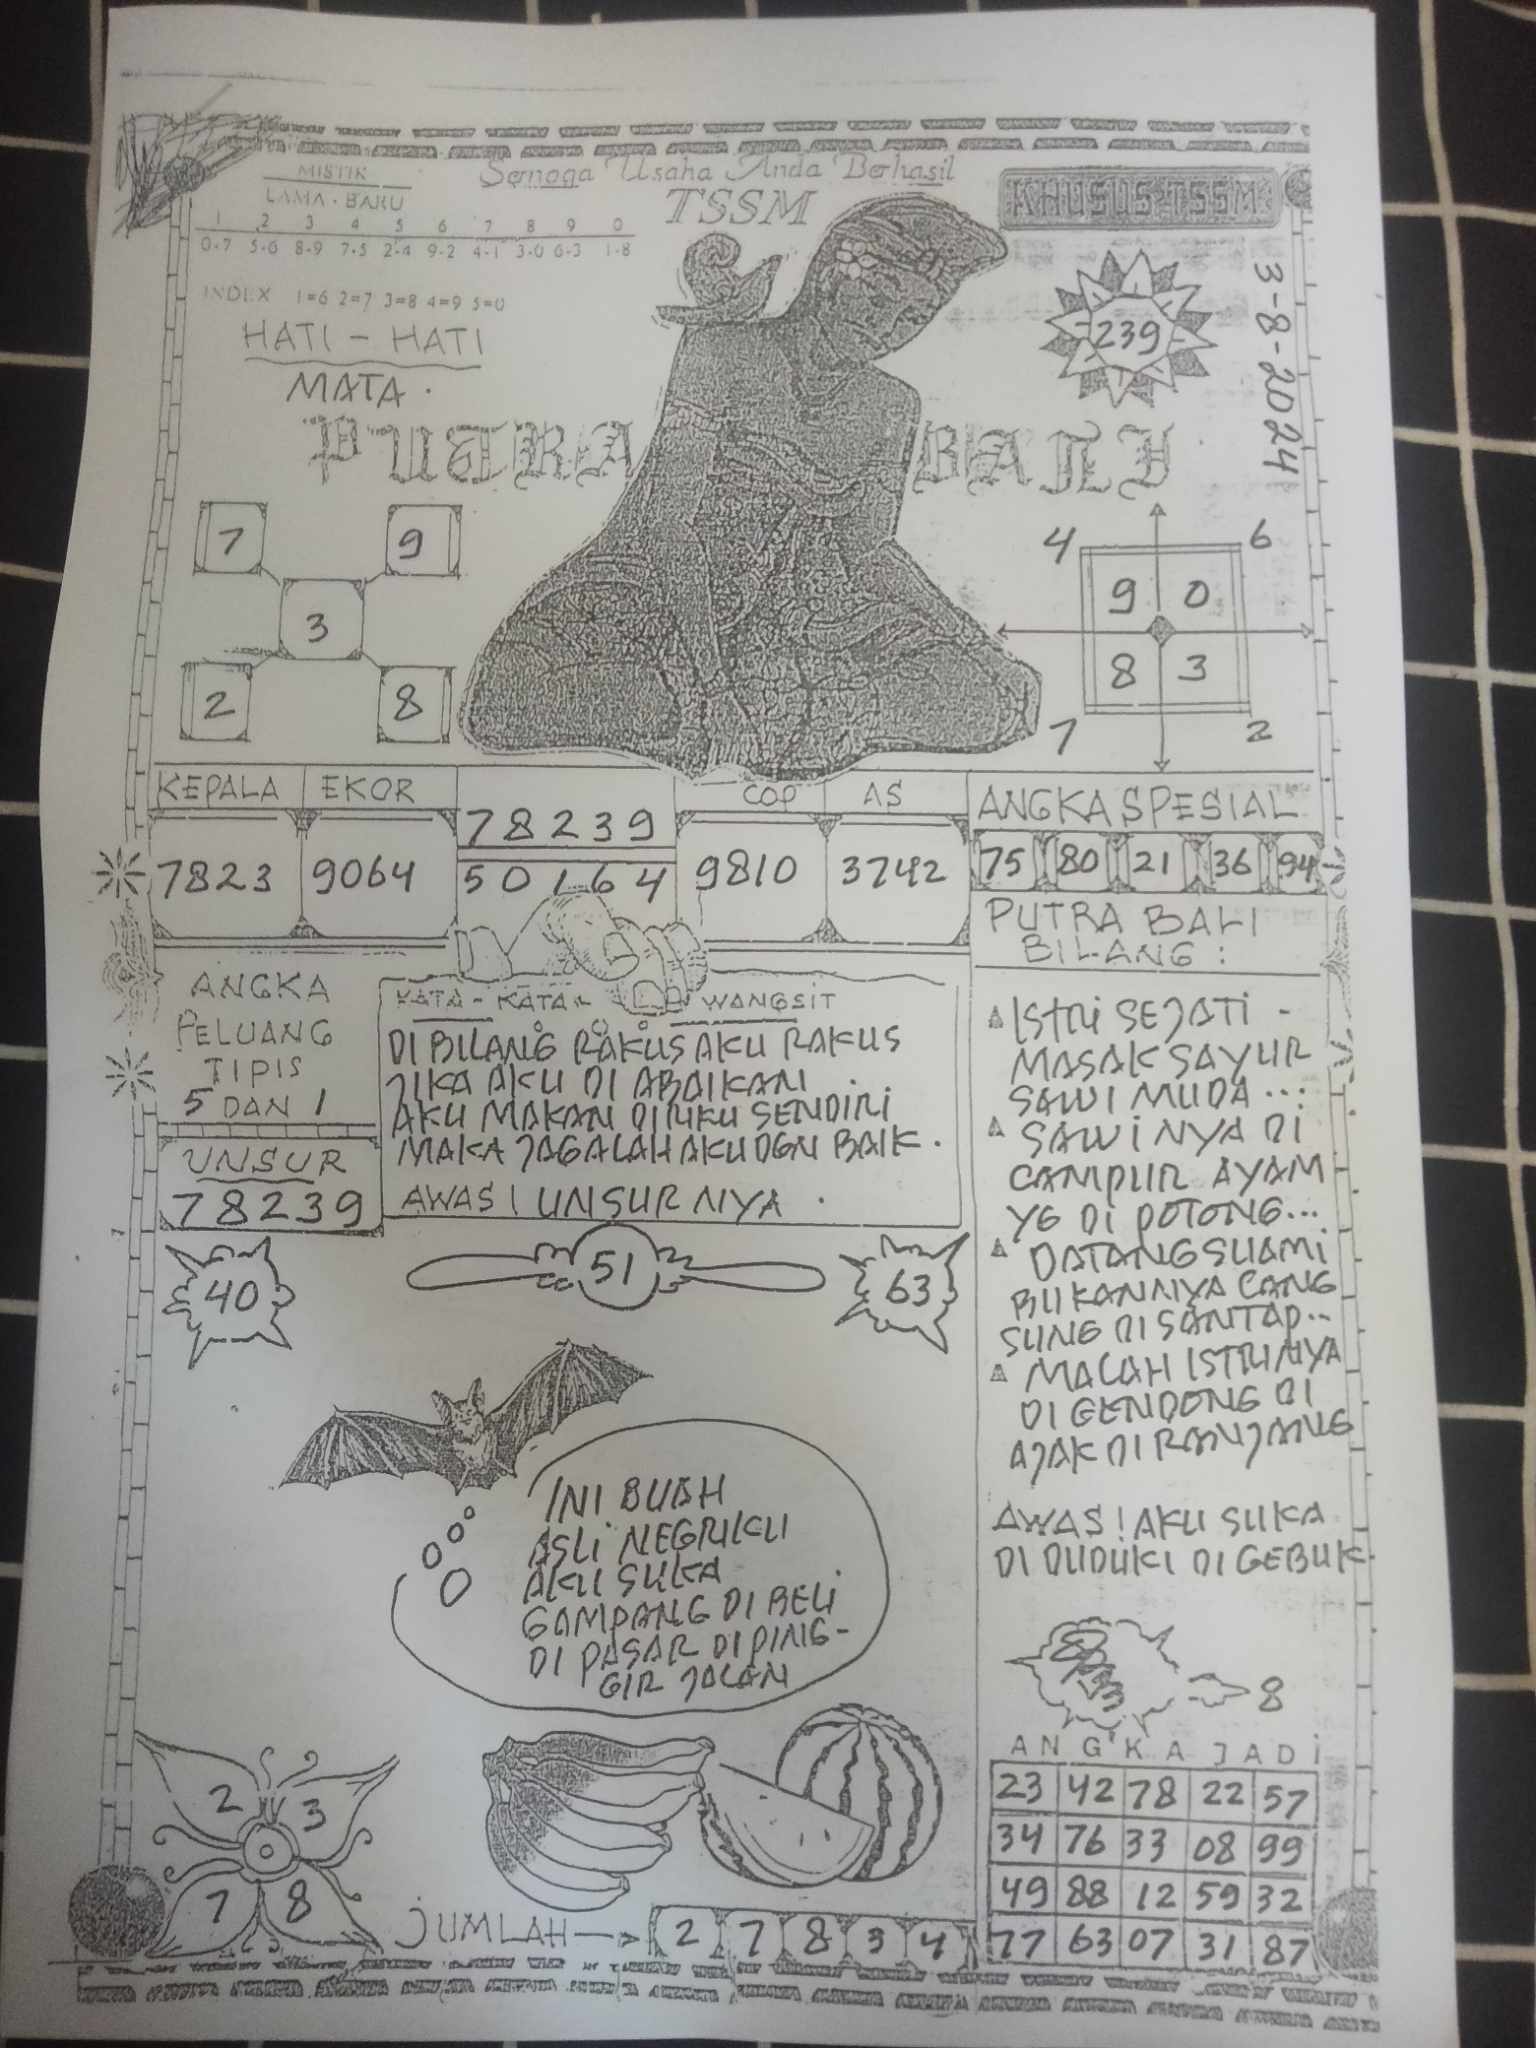 MISTIK
LAMA - BARU
1 2 3 4 5 6 7 8 9 0
0-7 5-6 8-9 7-5 2-4 9-2 4-1 3-0 6-3 1-8
INDEX 1=6 2=7 3=8 4=9 5=0
Semoga Usaha Anda Berhasil
TSSM
KHUSUS TSSM
239
3-8-2024
HATI - HATI
MATA
PUTRA BALI
7 9
3
2 8
4 6
9 0
8 3
7 2
KEPALA EKOR
7823 9064
78239
50164
COP AS
9810 3742
ANGKA SPESIAL
75 80 21 36 94
ANGKA
PELUANG
TIPIS
5 DAN 1
UNSUR
78239
KATA - KATA WANGSIT
DI BILANG RAKUS AKU RAKUS
JIKA AKU DI ABAIKAN
AKU MAKAN DIRIKU SENDIRI
MAKA JAGALAH AKU DGN BAIK.
AWAS! UNSURNYA.
40 51 63
PUTRA BALI
BILANG :
ISTRI SEJATI -
MASAK SAYUR
SAWI MUDA ...
SAWINYA DI
CAMPUR AYAM
YG DI POTONG...
DATANG SUAMI
BUKANNYA LANG
SUNG DI SANTAP...
MALAH ISTRINYA
DI GENDONG DI
AJAK DI RANJANG
AWAS! AKU SUKA
DI DUDUKI DI GEBUK
8
INI BUAH
ASLI NEGRIKU
AKU SUKA
GAMPANG DI BELI
DI PASAR DI PING-
GIR JALAN
2 3
7 8
JUMLAH
2 7 8 3 4
ANGKA JADI
23 42 78 22 57
34 76 33 08 99
49 88 12 59 32
77 63 07 31 87